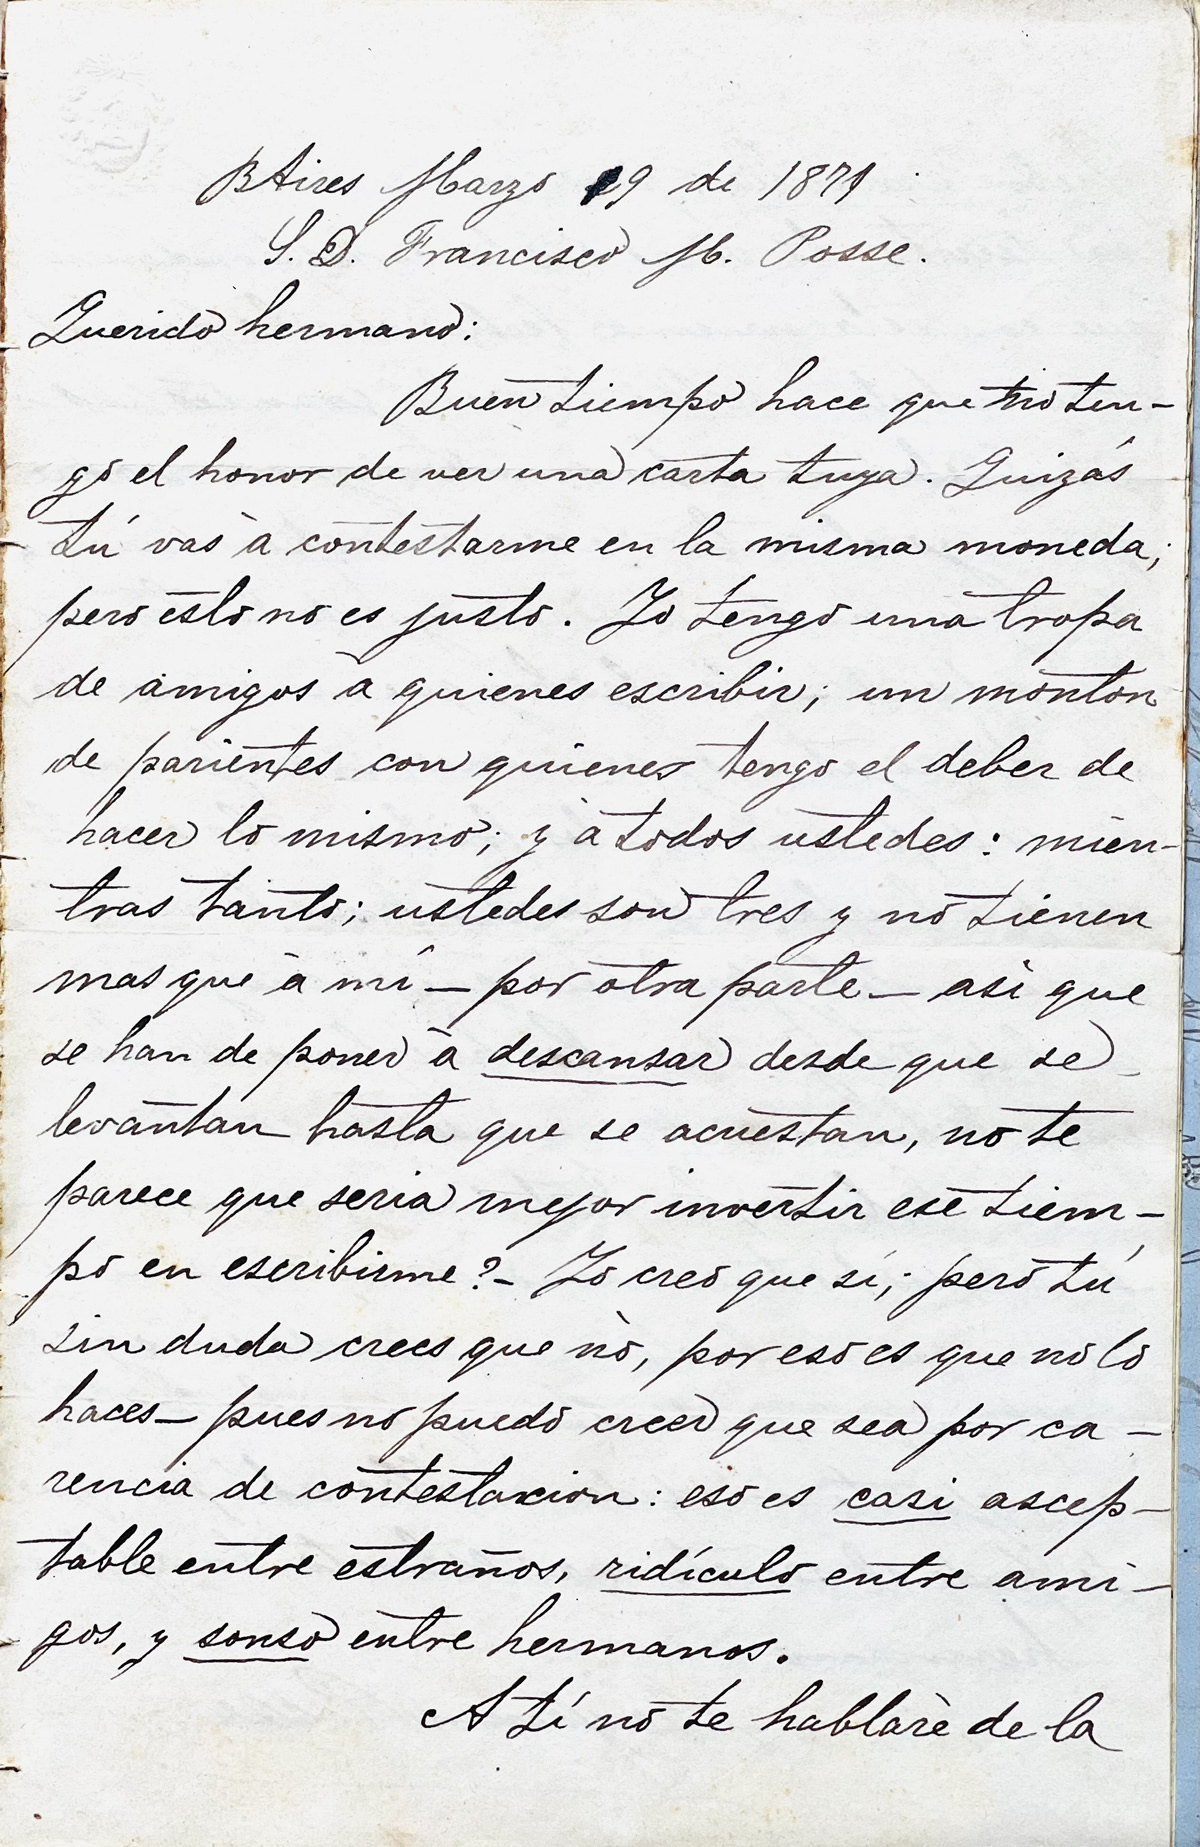 BAires Marzo 29 de 1871
S. D. Francisco M. Posse.
Querido hermano:
Buen tiempo hace que no ten-
go el honor de ver una carta tuya. Quizás
tú vas à contestarme en la misma moneda;
pero esto no es justo. Yo tengo una tropa
de amigos à quienes escribir; un monton
de parientes con quienes tengo el deber de
hacer lo mismo; y à todos ustedes: mien-
tras tanto; ustedes son tres y no tienen
mas que à mí — por otra parte — asi que
se han de poner à descansar desde que se
levantan hasta que se acuestan, no te
parece que seria mejor invertir ese tiem-
po en escribirme? — Yo creo que si; pero tú
sin duda crees que nò, por eso es que no lo
haces — pues no puedo creer que sea por ca-
rencia de contestacion: eso es casi ascep-
table entre estraños, ridículo entre ami-
gos, y sonso entre hermanos.
A tí no te hablarè de la